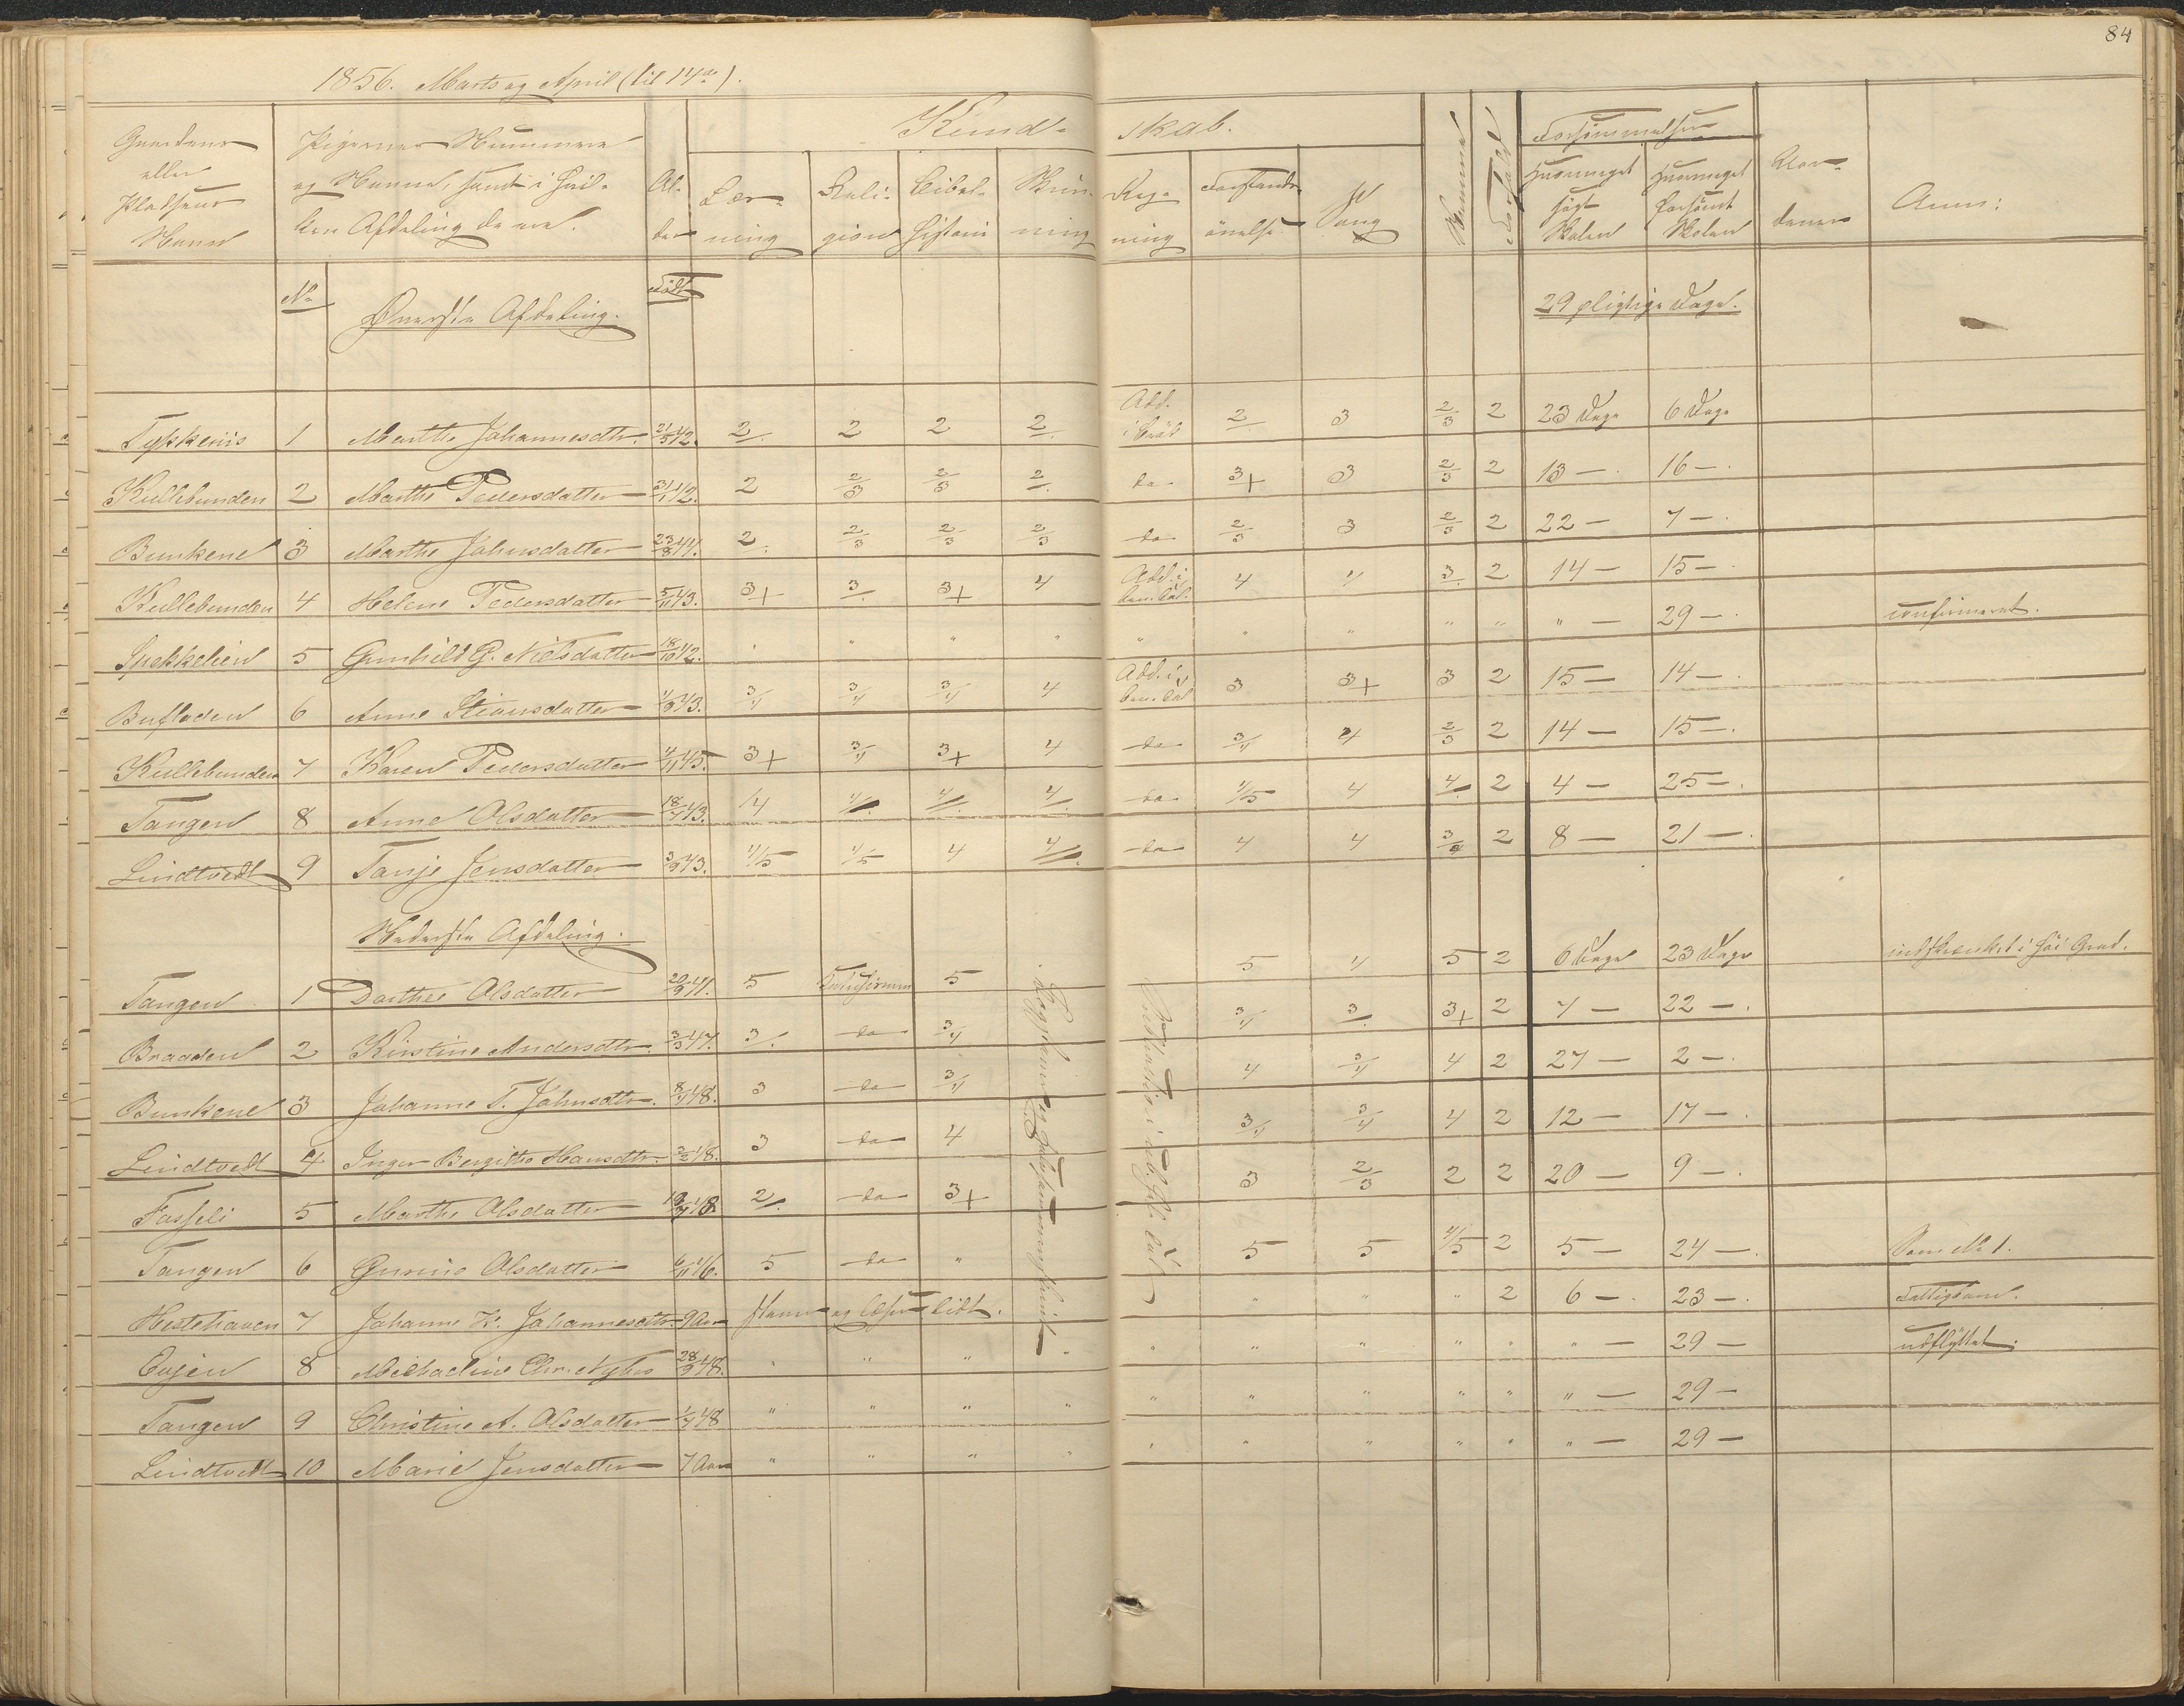 84
1856. Marts og April (til 14de).
Gaardens eller Pladsens Navn
Pigernes Nummere og Navne, samt i hvilken Afdeling de ere.
Alder
Kundskab.
Læsning
Religion
Bibelhistorie
Skrivning
Regning
Forstandsøvelse
Sang
Nemme
Forhold
Forsømmelser
Hvormeget søgt Skolen
Hvormeget forsømt Skolen
Anm:
No
Øverste Afdeling.
Født
29 pligtige Dage.
1 Marthe Johannesdtr. 21/5 42. 2/. 2 2 2/. Add. 2/. 3 2/3 2 23 Dage 6 Dage
Kullebunden 2 Marthe Pedersdatter 31/1 42. 2 2/3 2/3 2/. do 3+ 3 2/3 2 13 — 16 —.
Bunkene 3 Marthe Johnsdatter 23/8 44. 2. 2/3 2/3 2/3 do 2/3 3 2/3 2 22 — 7 —.
Kullebunden 4 Helene Pedersdatter 5/11 43. 3+ 3/. 3+ 4 Add. i 4 4 3/. 2 14 — 15 —.
5 Gunhild G. Nielsdatter 18/10 42. " " " " " " " " " — 29 —. confirmeret.
Bufladen 6 Anne Stiansdatter 4/9 43. 3/4 3/4 3/4 4 Add. i 3 3+ 3 2 15 — 14 —.
Kullebunden 7 Karen Pedersdatter 4/11 45. 3+ 3/4 3+ 4 do 3/4 4 2/3 2 14 — 15 —.
Tangen 8 Anne Olsdatter 18/7 43. 4 4/. 4/. 4/. do 4/5 4 4/. 2 4 — 25 —.
Lindtvedt 9 Tanje Jensdatter 3/9 43. 4/5 4/5 4 4/. do 4 4 3/4 2 8 — 21 —.
Nederste Afdeling.
Tangen 1 Dorthea Olsdatter 20/9 41. 5 5 5 4 5 2 6 Dage 23 Dage indskrænket i høi Grad.
Braaden 2 Kirstine Andersdtr. 3/3 47. 3/. do 3/4 3/4 3/. 3+ 2 7 — 22 —.
Bunkene 3 Johanne T. Johnsdtr. 8/7 48. 3 do 3/4 4 3/4 4 2 27 — 2 —.
Lindtvedt 4 Inger Bergithe Hansdtr. 2/2 48. 3 do 4 3/4 3/4 4 2 12 — 17 —.
Fasseli 5 Marthe Olsdatter 48 2/. do 3+ 3 2/3 2 2 20 — 9 —.
Tangen 6 Gurine Olsdatter 6/11 46. 5 do " 5 5 4/5 2 5 — 24 —. Som No 1.
Hestehaven 7 Johanne K. Johannesdtr. 9 Aar og læser lidt. " " " 2 6 —. 23 —.
8 28/9 48. " " " " " " " " " " — 29 — udflyttet.
Tangen 9 Christine A. Olsdatter 1/7 48 " " " " " " " " " " — 29 —
Lindtvedt 10 Marie Jensdatter 7 Aar " " " " " " " " " " — 29 —